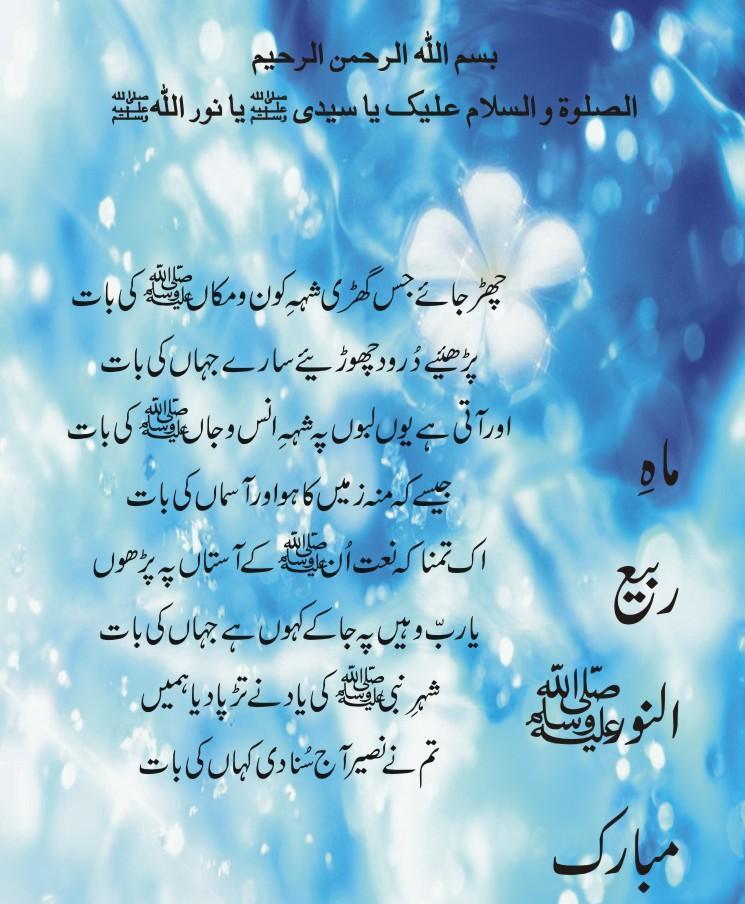 بسم اللہ الرحمن الرحیم
الصلوۃ و السلام علیک یا سیدی ﷺ یا نور اللہ ﷺ
چھڑ جائے جس گھڑی شہہِ کون و مکاں ﷺ کی بات
پڑھیئے دُرود چھوڑیئے سارے جہاں کی بات
اور آتی ہے یوں لبوں پہ شہہِ انس و جاں ﷺ کی بات
جیسے کہ منہ زمیں کا ہو اور آسماں کی بات
اک تمنا کہ نعت اُن ﷺ کے آستاں پہ پڑھوں
یا ربّ وہیں پہ جا کے کہوں ہے جہاں کی بات
شہرِ نبی ﷺ کی یاد نے تڑپا دیا ہمیں
تم نے نصیر آج سُنا دی کہاں کی بات
ماہِ
ربیع
النور ﷺ
مبارک